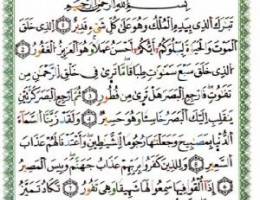 بِسْمِ اللَّهِ الرَّحْمَٰنِ الرَّحِيمِ
تَبَٰرَكَ ٱلَّذِى بِيَدِهِ ٱلْمُلْكُ وَهُوَ عَلَىٰ كُلِّ شَىْءٍ قَدِيرٌ ١ ٱلَّذِى خَلَقَ
ٱلْمَوْتَ وَٱلْحَيَوٰةَ لِيَبْلُوَكُمْ أَيُّكُمْ أَحْسَنُ عَمَلًا وَهُوَ ٱلْعَزِيزُ ٱلْغَفُورُ ٢
ٱلَّذِى خَلَقَ سَبْعَ سَمَٰوَٰتٍ طِبَاقًا مَّا تَرَىٰ فِى خَلْقِ ٱلرَّحْمَٰنِ مِن
تَفَٰوُتٍ فَٱرْجِعِ ٱلْبَصَرَ هَلْ تَرَىٰ مِن فُطُورٍ ٣ ثُمَّ ٱرْجِعِ ٱلْبَصَرَ كَرَّتَيْنِ
يَنقَلِبْ إِلَيْكَ ٱلْبَصَرُ خَاسِئًا وَهُوَ حَسِيرٌ ٤ وَلَقَدْ زَيَّنَّا ٱلسَّمَآءَ
ٱلدُّنْيَا بِمَصَٰبِيحَ وَجَعَلْنَٰهَا رُجُومًا لِّلشَّيَٰطِينِ وَأَعْتَدْنَا لَهُمْ عَذَابَ
ٱلسَّعِيرِ ٥ وَلِلَّذِينَ كَفَرُوا۟ بِرَبِّهِمْ عَذَابُ جَهَنَّمَ وَبِئْسَ ٱلْمَصِيرُ
٦ إِذَآ أُلْقُوا۟ فِيهَا سَمِعُوا۟ لَهَا شَهِيقًا وَهِىَ تَفُورُ ٧ تَكَادُ تَمَيَّزُ